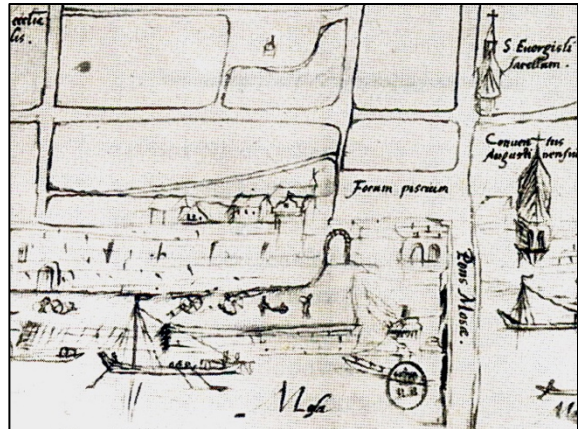 ecclia-
lis.
S. Evergisli
sacellum.
Conventus
Augustinensiu
Forum piscium
Pons Mosæ.
Mosa